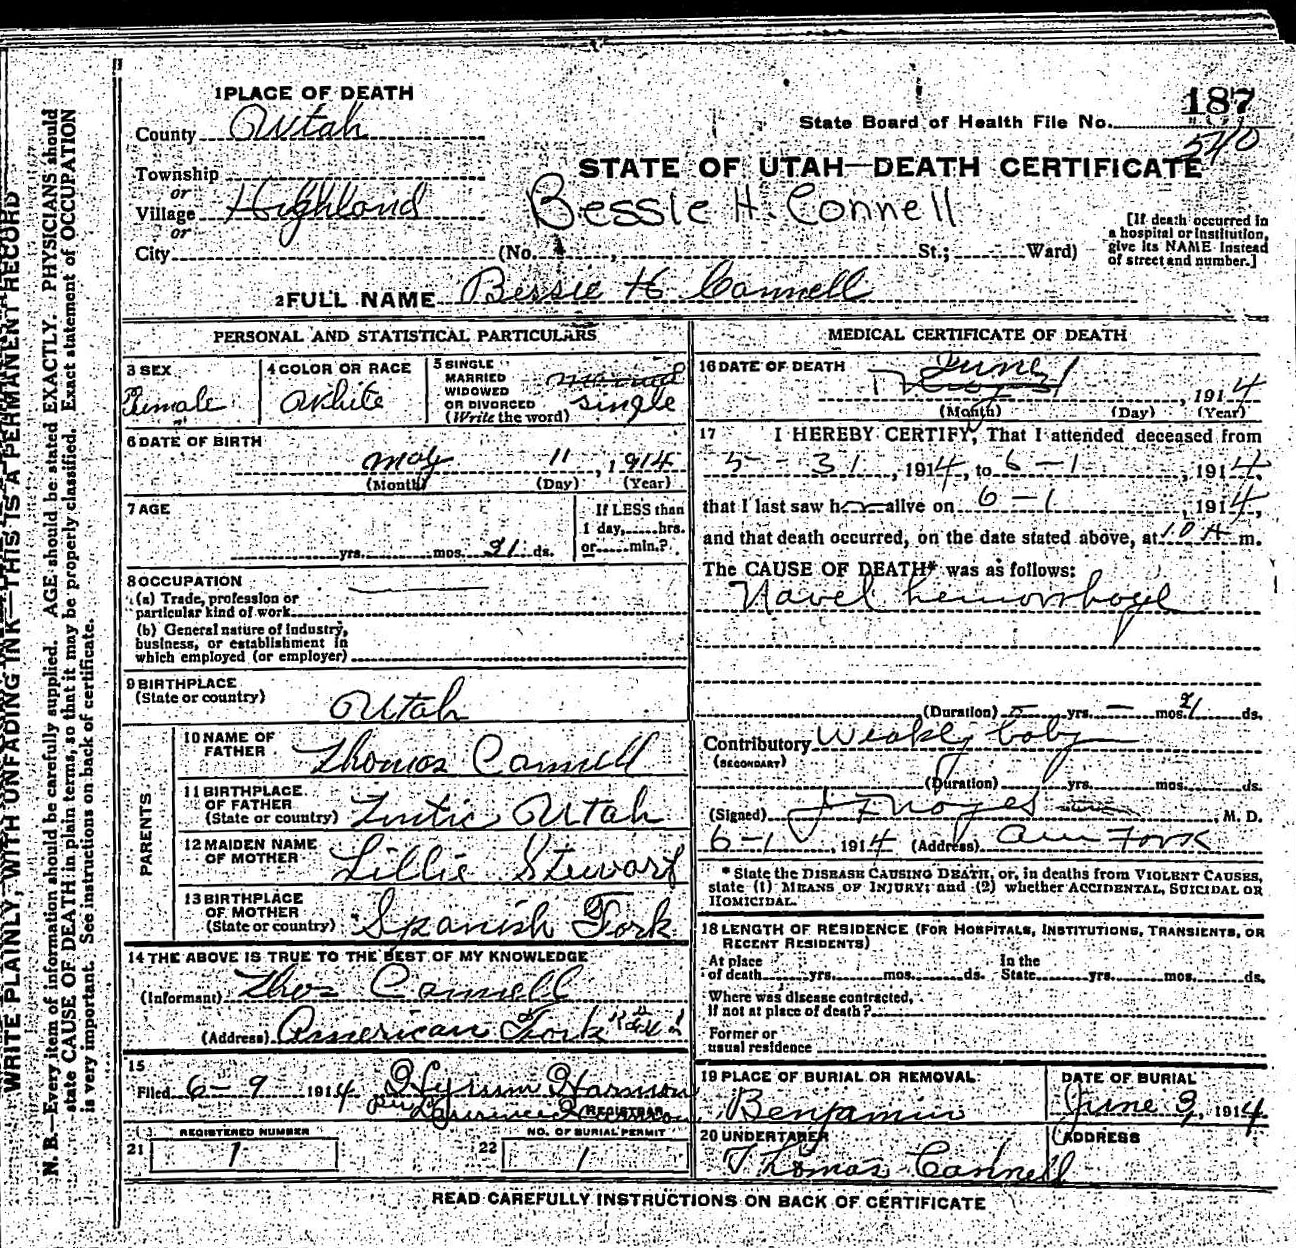 187
540
1 PLACE OF DEATH
State Board of Health File No.
County Utah
STATE OF UTAH—DEATH CERTIFICATE
Township
or
Village Highland
or
City
Bessie H. Connell
(No. St.; Ward)
[If death occurred in
a hospital or institution,
give its NAME instead
of street and number.]
2 FULL NAME Bessie H Connell
PERSONAL AND STATISTICAL PARTICULARS
3 SEX
Female
4 COLOR OR RACE
White
5 SINGLE
MARRIED
WIDOWED
OR DIVORCED
(Write the word)
married
single
6 DATE OF BIRTH
May 11, 1914
(Month) (Day) (Year)
7 AGE
yrs. mos. 21 ds.
If LESS than
1 day, hrs.
or min.?
8 OCCUPATION
(a) Trade, profession or
particular kind of work
(b) General nature of industry,
business, or establishment in
which employed (or employer)
9 BIRTHPLACE
(State or country)
Utah
PARENTS
10 NAME OF
FATHER
Thomas Connell
11 BIRTHPLACE
OF FATHER
(State or country)
Tintic Utah
12 MAIDEN NAME
OF MOTHER
Lillie Stewart
13 BIRTHPLACE
OF MOTHER
(State or country)
Spanish Fork
14 THE ABOVE IS TRUE TO THE BEST OF MY KNOWLEDGE
(Informant) Thos Connell
(Address) American Fork
15
Filed 6-9 1914 Hyrum Harmon
REGISTRAR
REGISTERED NUMBER
21 1
NO. OF BURIAL PERMIT
22 1
MEDICAL CERTIFICATE OF DEATH
16 DATE OF DEATH
June 1, 1914
(Month) (Day) (Year)
17 I HEREBY CERTIFY, That I attended deceased from
5-31, 1914, to 6-1, 1914,
that I last saw h alive on 6-1, 1914,
and that death occurred, on the date stated above, at 10 A m.
The CAUSE OF DEATH* was as follows:
Navel hemorrhage
(Duration) — yrs. — mos. 21 ds.
Contributory Weakly baby
(SECONDARY)
(Duration) yrs. mos. ds.
(Signed) J F Noyes M. D.
6-1, 1914 (Address) Am Fork
* State the DISEASE CAUSING DEATH, or, in deaths from VIOLENT CAUSES,
state (1) MEANS OF INJURY; and (2) whether ACCIDENTAL, SUICIDAL OR
HOMICIDAL.
18 LENGTH OF RESIDENCE (FOR HOSPITALS, INSTITUTIONS, TRANSIENTS, OR
RECENT RESIDENTS)
At place
of death yrs. mos. ds.
In the
State yrs. mos. ds.
Where was disease contracted,
If not at place of death?
Former or
usual residence
19 PLACE OF BURIAL OR REMOVAL
Benjamin
DATE OF BURIAL
June 3, 1914
20 UNDERTAKER
Thomas Connell
ADDRESS
READ CAREFULLY INSTRUCTIONS ON BACK OF CERTIFICATE
WRITE PLAINLY, WITH UNFADING INK—THIS IS A PERMANENT RECORD
N. B.—Every item of information should be carefully supplied. AGE should be stated EXACTLY. PHYSICIANS should
state CAUSE OF DEATH in plain terms, so that it may be properly classified. Exact statement of OCCUPATION
is very important. See instructions on back of certificate.